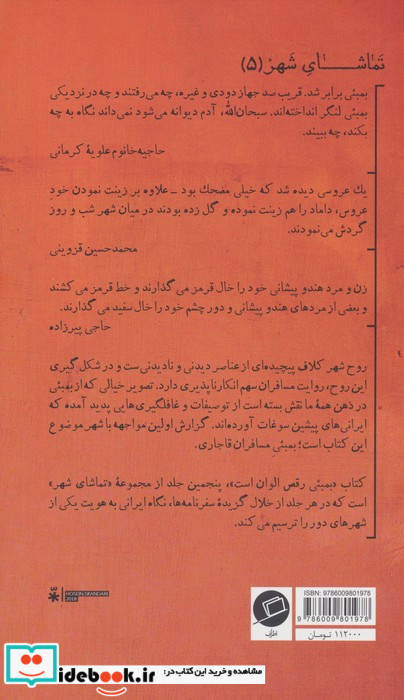 تماشای شهر (۵)
بمبئی برابر شد. قریب سد جهاز دودی و غیره، چه می‌رفتند و چه در نزدیکی
بمبئی لنگر انداخته‌اند. سبحان‌الله، آدم دیوانه می‌شود نمی‌داند نگاه به چه
بکند، چه ببیند.
حاجیه‌خانوم علویهٔ کرمانی
یك عروسی دیده شد که خیلی مضحك بود ــ علاوه بر زینت نمودن خودِ
عروس، داماد را هم زینت نموده و گل زده بودند در میان شهر شب و روز
گردش می‌نمودند.
محمدحسین قزوینی
زن و مرد هندو پیشانی خود را خال قرمز می‌گذارند و خط قرمز می کشند
و بعضی از مردهای هندو پیشانی و دور چشم خود را خال سفید می‌گذارند.
حاجی پیرزاده
روح شهر کلاف پیچیده‌ای از عناصر دیدنی و نادیدنی‌ست و در شکل گیری
این روح، روایت مسافران سهم انکارناپذیری دارد. تصویر خیالی که از بمبئی
در ذهن همهٔ ما نقش بسته است از توصیفات و غافلگیری‌هایی پدید آمده که
ایرانی‌های پیشین سوغات آورده‌اند. گزارش اولین مواجهه با شهر موضوع
این کتاب است؛ بمبئیِ مسافران قاجاری.
کتاب «بمبئی رقص الوان است»، پنجمین جلد از مجموعهٔ «تماشای شهر»
است که در هر جلد از خلال گزیدهٔ سفرنامه‌ها، نگاه ایرانی به هویت یکی از
شهرهای دور را ترسیم می کند.
HOSEIN SKANDARI
ISBN: 9786009801978
9 786009 801978
اطراف
۱۱۲۰۰۰ تومــان
مشاهده و خرید این کتاب در:
idebook.ir